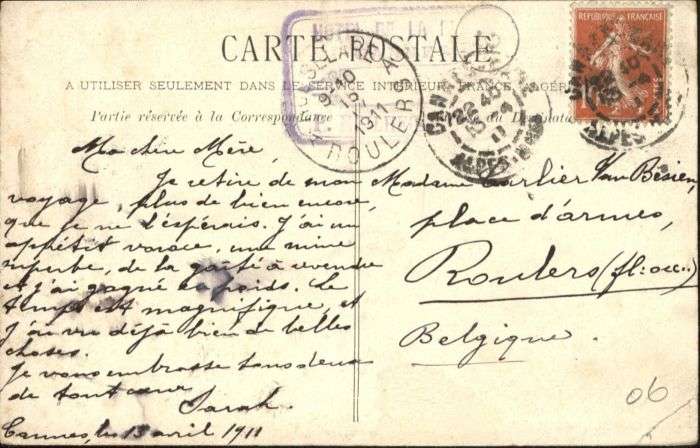 CARTE POSTALE
A UTILISER SEULEMENT DANS LE SERVICE INTÉRIEUR, FRANCE,
Partie réservée à la Correspondance
du Destinataire
RÉPUBLIQUE FRANÇAISE
HOTEL DE LA
ROULERS
1911
CANNES
ALPES
Ma chère Mère,
Je retire de mon
voyage, plus de bien encore,
que je ne l'espérais. J'ai un
appétit vorace, une mine
superbe, de la gaîté à revendre
et j'ai gagné en poids. Le
temps est magnifique, et
j'ai vu déjà bien de belles
choses.
Je vous embrasse tous deux
de tout cœur
Sarah.
Cannes, les 13 avril 1911
Madame Carlier Van Besien
place d'armes,
Roulers (fl: occ:)
Belgique.
06